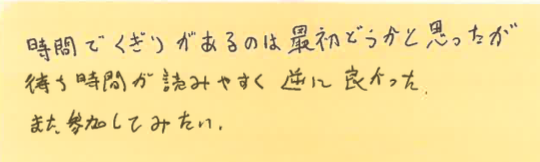 時間でくぎりがあるのは最初どうかと思ったが
待ち時間が読みやすく逆に良かった.
また参加してみたい.